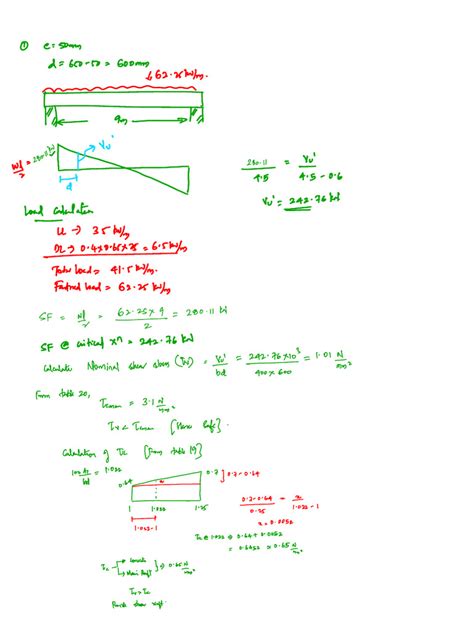 ① e = 50mm
d = 650-50 = 600mm
↓62.25 kN/m.
9m
Wl/2 = 280.11 kN
Vu'
d
280.11/4.5 = Vu'/4.5-0.6
Vu' = 242.76 kN
Load Calculation
LL → 35 kN/m
DL → 0.4×0.65×25 = 6.5 kN/m
Total load = 41.5 kN/m.
Factored load = 62.25 kN/m.
SF = Wl/2 = 62.25 × 9/2 = 280.11 kN
SF @ critical xn = 242.76 kN
Calculate Nominal shear stress (τv) = Vu'/bd = 242.76×10³/400×600 = 1.01 N/mm².
From table 20,
τcmax = 3.1 N/mm².
τv < τcmax [Hence Safe].
Calculation of τc [From table 19]
100 As/bd = 1.022
0.64
x
0.7
0.7-0.64
1
1.022
1.25
1.022-1
0.7-0.64/0.25 = x/1.022-1
x = 0.0052
τc @ 1.022 ⇒ 0.64 + 0.0052
= 0.6452 ≈ 0.65 N/mm²
τc
⇒ 0.65 N/mm²
τv > τc
shear reqd.